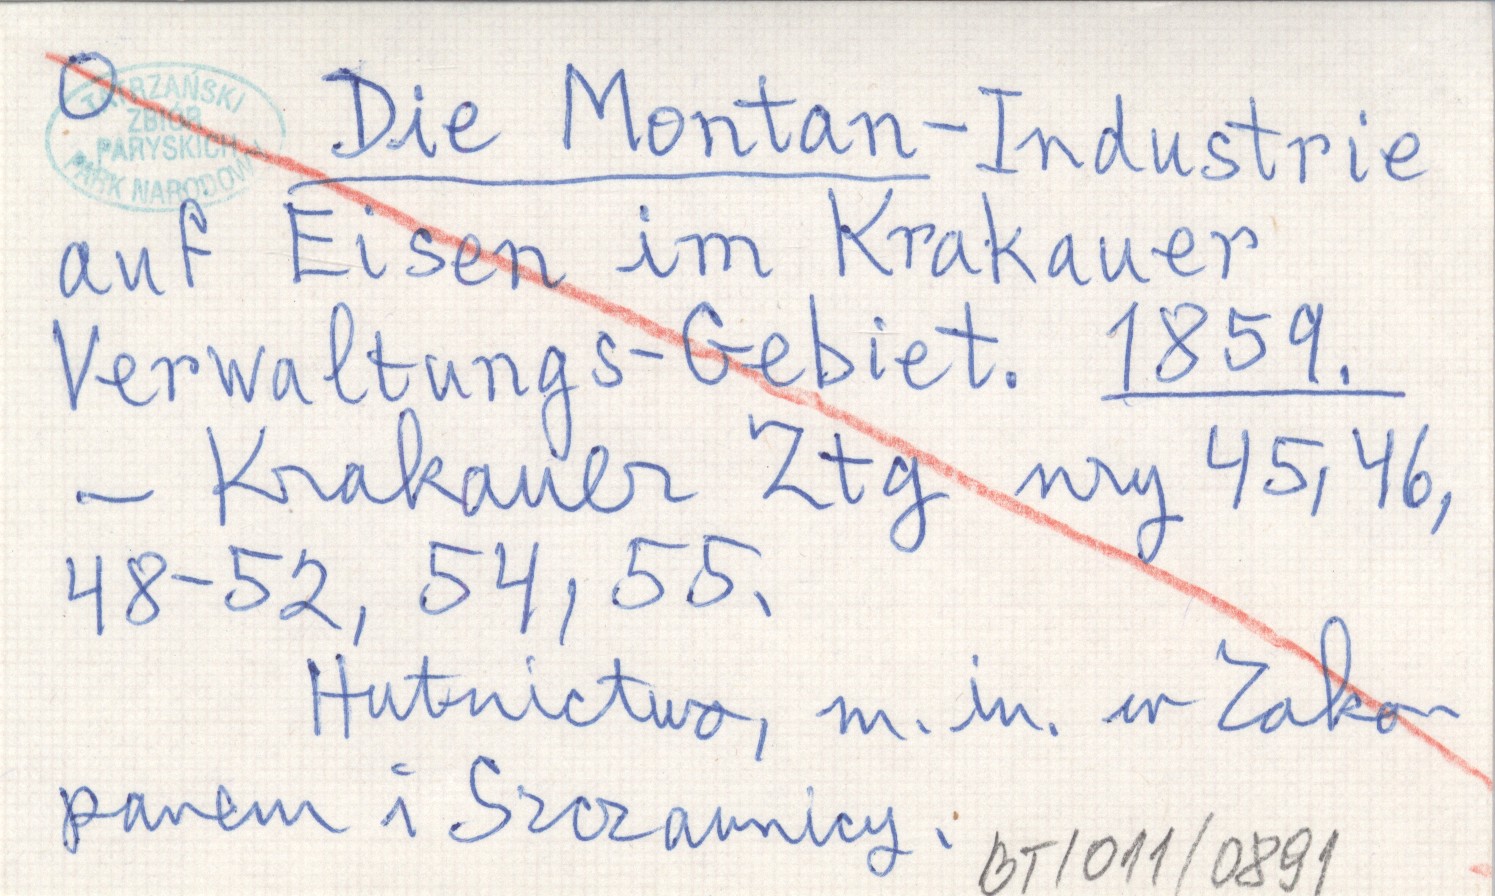 O Die Montan-Industrie
auf Eisen im Krakauer
Verwaltungs-Gebiet. 1859.
— Krakauer Ztg nry 45, 46,
48-52, 54, 55.
Hutnictwo, m. in. w Zako
panem i Szczawnicy.
BT/011/0891
TATRZAŃSKI
ZBIÓR
PARYSKICH
PARK NARODOWY